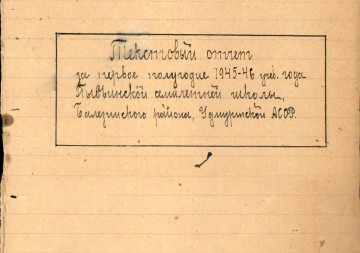 Текстовый отчет
за первое полугодие 1945-46 учеб. года
семилетней школы,
Балезинского района, Удмуртской АССР.